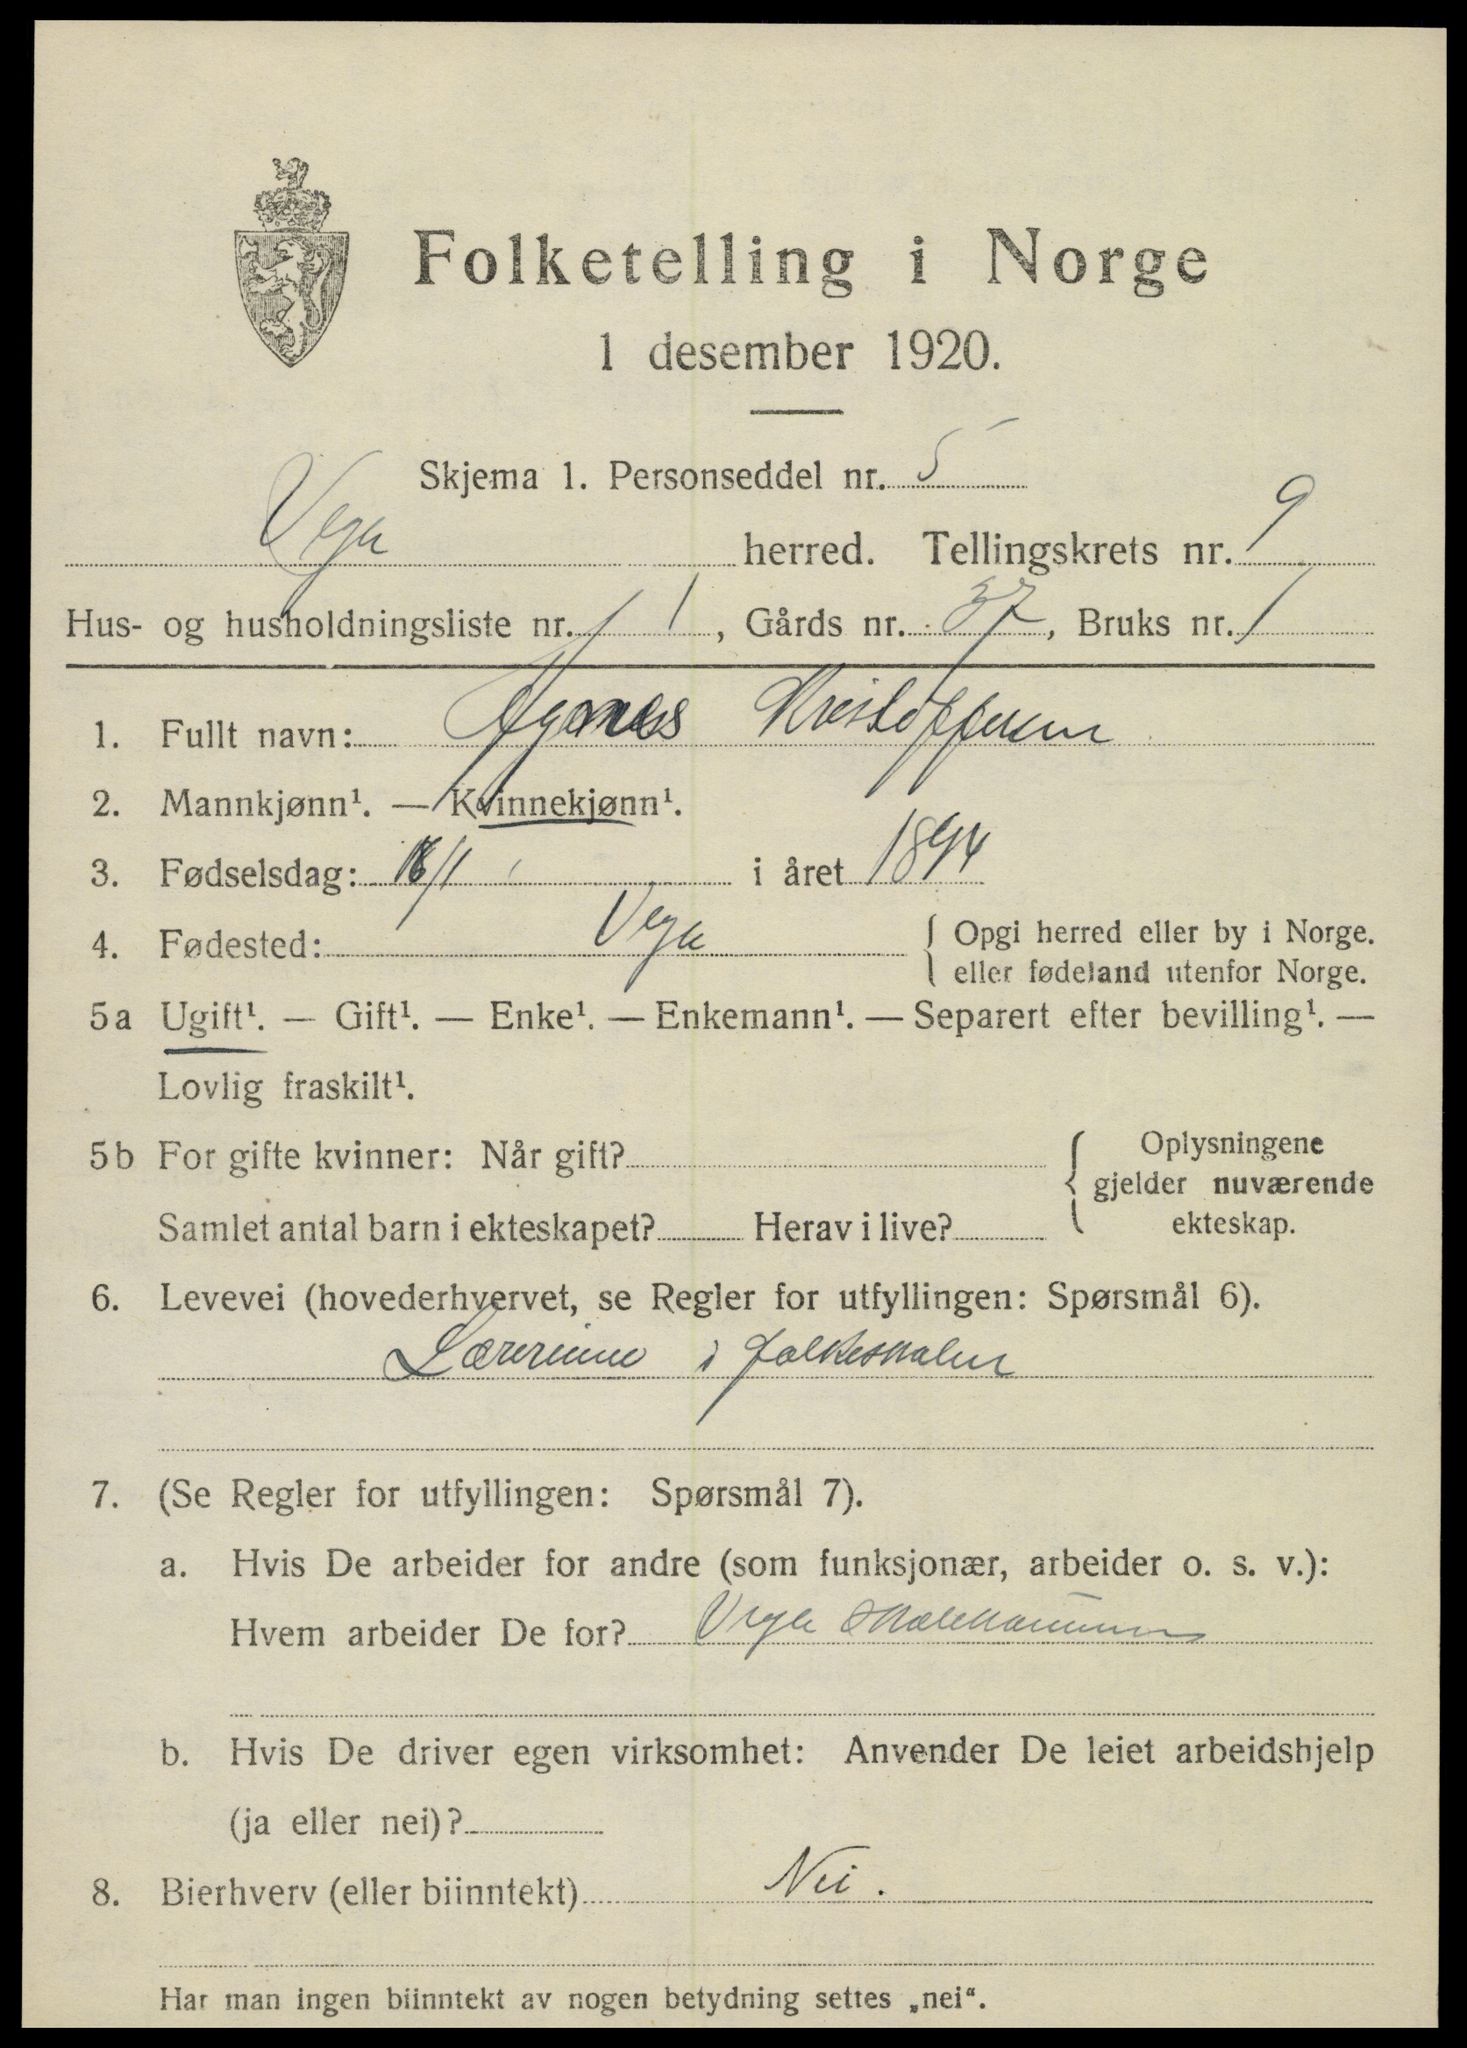 Folketelling i Norge
1 desember 1920.
Skjema 1. Personseddel nr. 5
Vega herred. Tellingskrets nr. 9
Hus- og husholdningsliste nr. 1, Gårds nr. 37, Bruks nr. 1
1. Fullt navn: Agnes Kristoffersen
2. Mannkjønn¹. — Kvinnekjønn¹.
3. Fødselsdag: /1 i året 1894
4. Fødested: Vega { Opgi herred eller by i Norge.
eller fødeland utenfor Norge.
5a Ugift¹. — Gift¹. — Enke¹. — Enkemann¹. — Separert efter bevilling¹. —
Lovlig fraskilt¹.
5b For gifte kvinner: Når gift? { Oplysningene
gjelder nuværende
Samlet antal barn i ekteskapet? Herav i live? ekteskap.
6. Levevei (hovederhvervet, se Regler for utfyllingen: Spørsmål 6).
Lærerinne i folkeskolen
7. (Se Regler for utfyllingen: Spørsmål 7).
a. Hvis De arbeider for andre (som funksjonær, arbeider o. s. v.):
Hvem arbeider De for? Vega
b. Hvis De driver egen virksomhet: Anvender De leiet arbeidshjelp
(ja eller nei)?
8. Bierhverv (eller biinntekt) Nei.
Har man ingen biinntekt av nogen betydning settes „nei“.